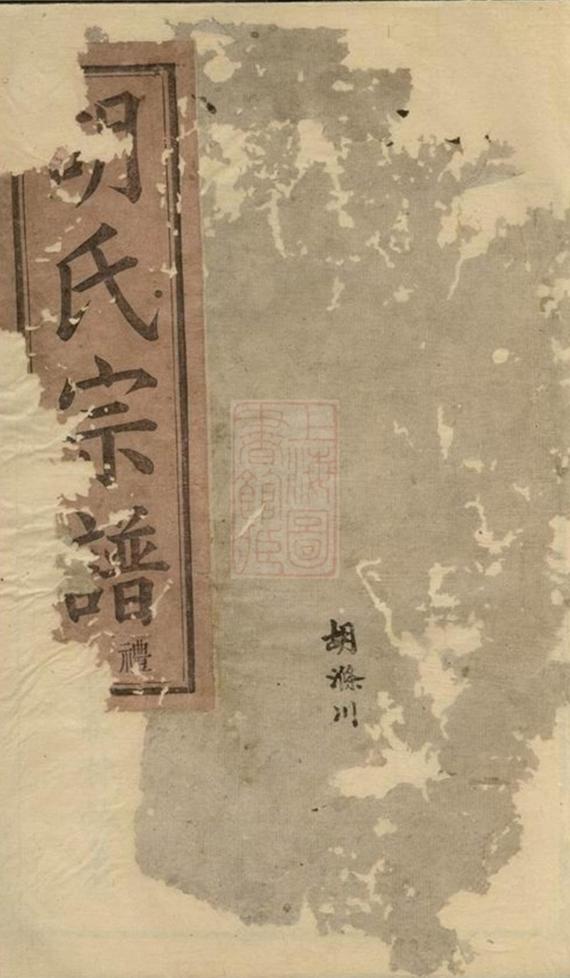 胡滌川
上海圖
書館藏
胡氏宗譜
禮